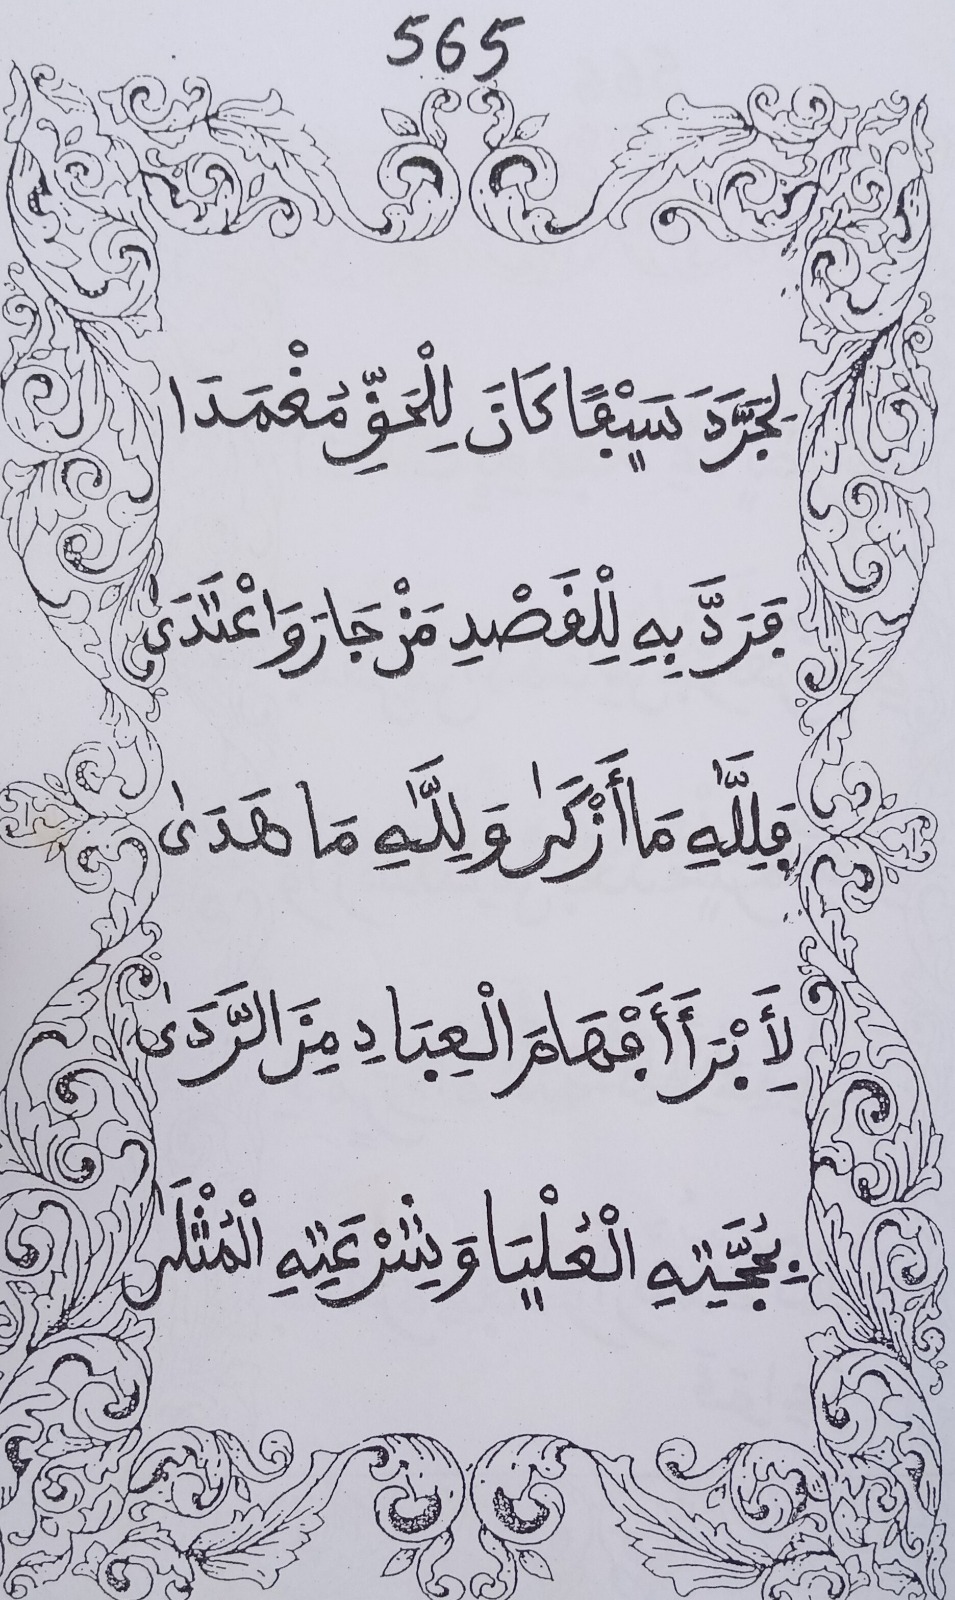 565
فَجَرَّدَ سَيْفًا كَانَ لِلْحَقِّ مُغْمَدَا
فَرَدَّ بِهِ لِلْقَصْدِ مَنْ جَارَ وَاعْتَدَىٰ
فَلِلَّهِ مَا أَزْكَىٰ وَلِلَّهِ مَا هَدَىٰ
لِأَبْرَأَ أَفْهَامَ الْعِبَادِ مِنَ الرَّدَىٰ
بِحُجَّتِهِ الْعُلْيَا وَشِرْعَتِهِ الْمُثْلَىٰ